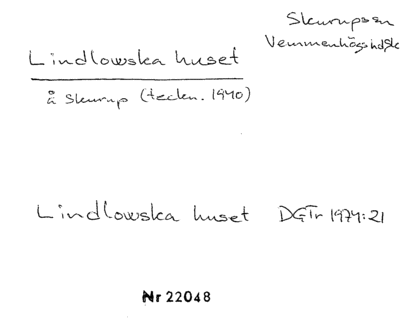 Skurups sn
Vemmenhögs hd Sk
Lindlowska huset
å Skurup (teckn. 1940)
Lindlowska huset DGTr 1974:21
Nr 22048